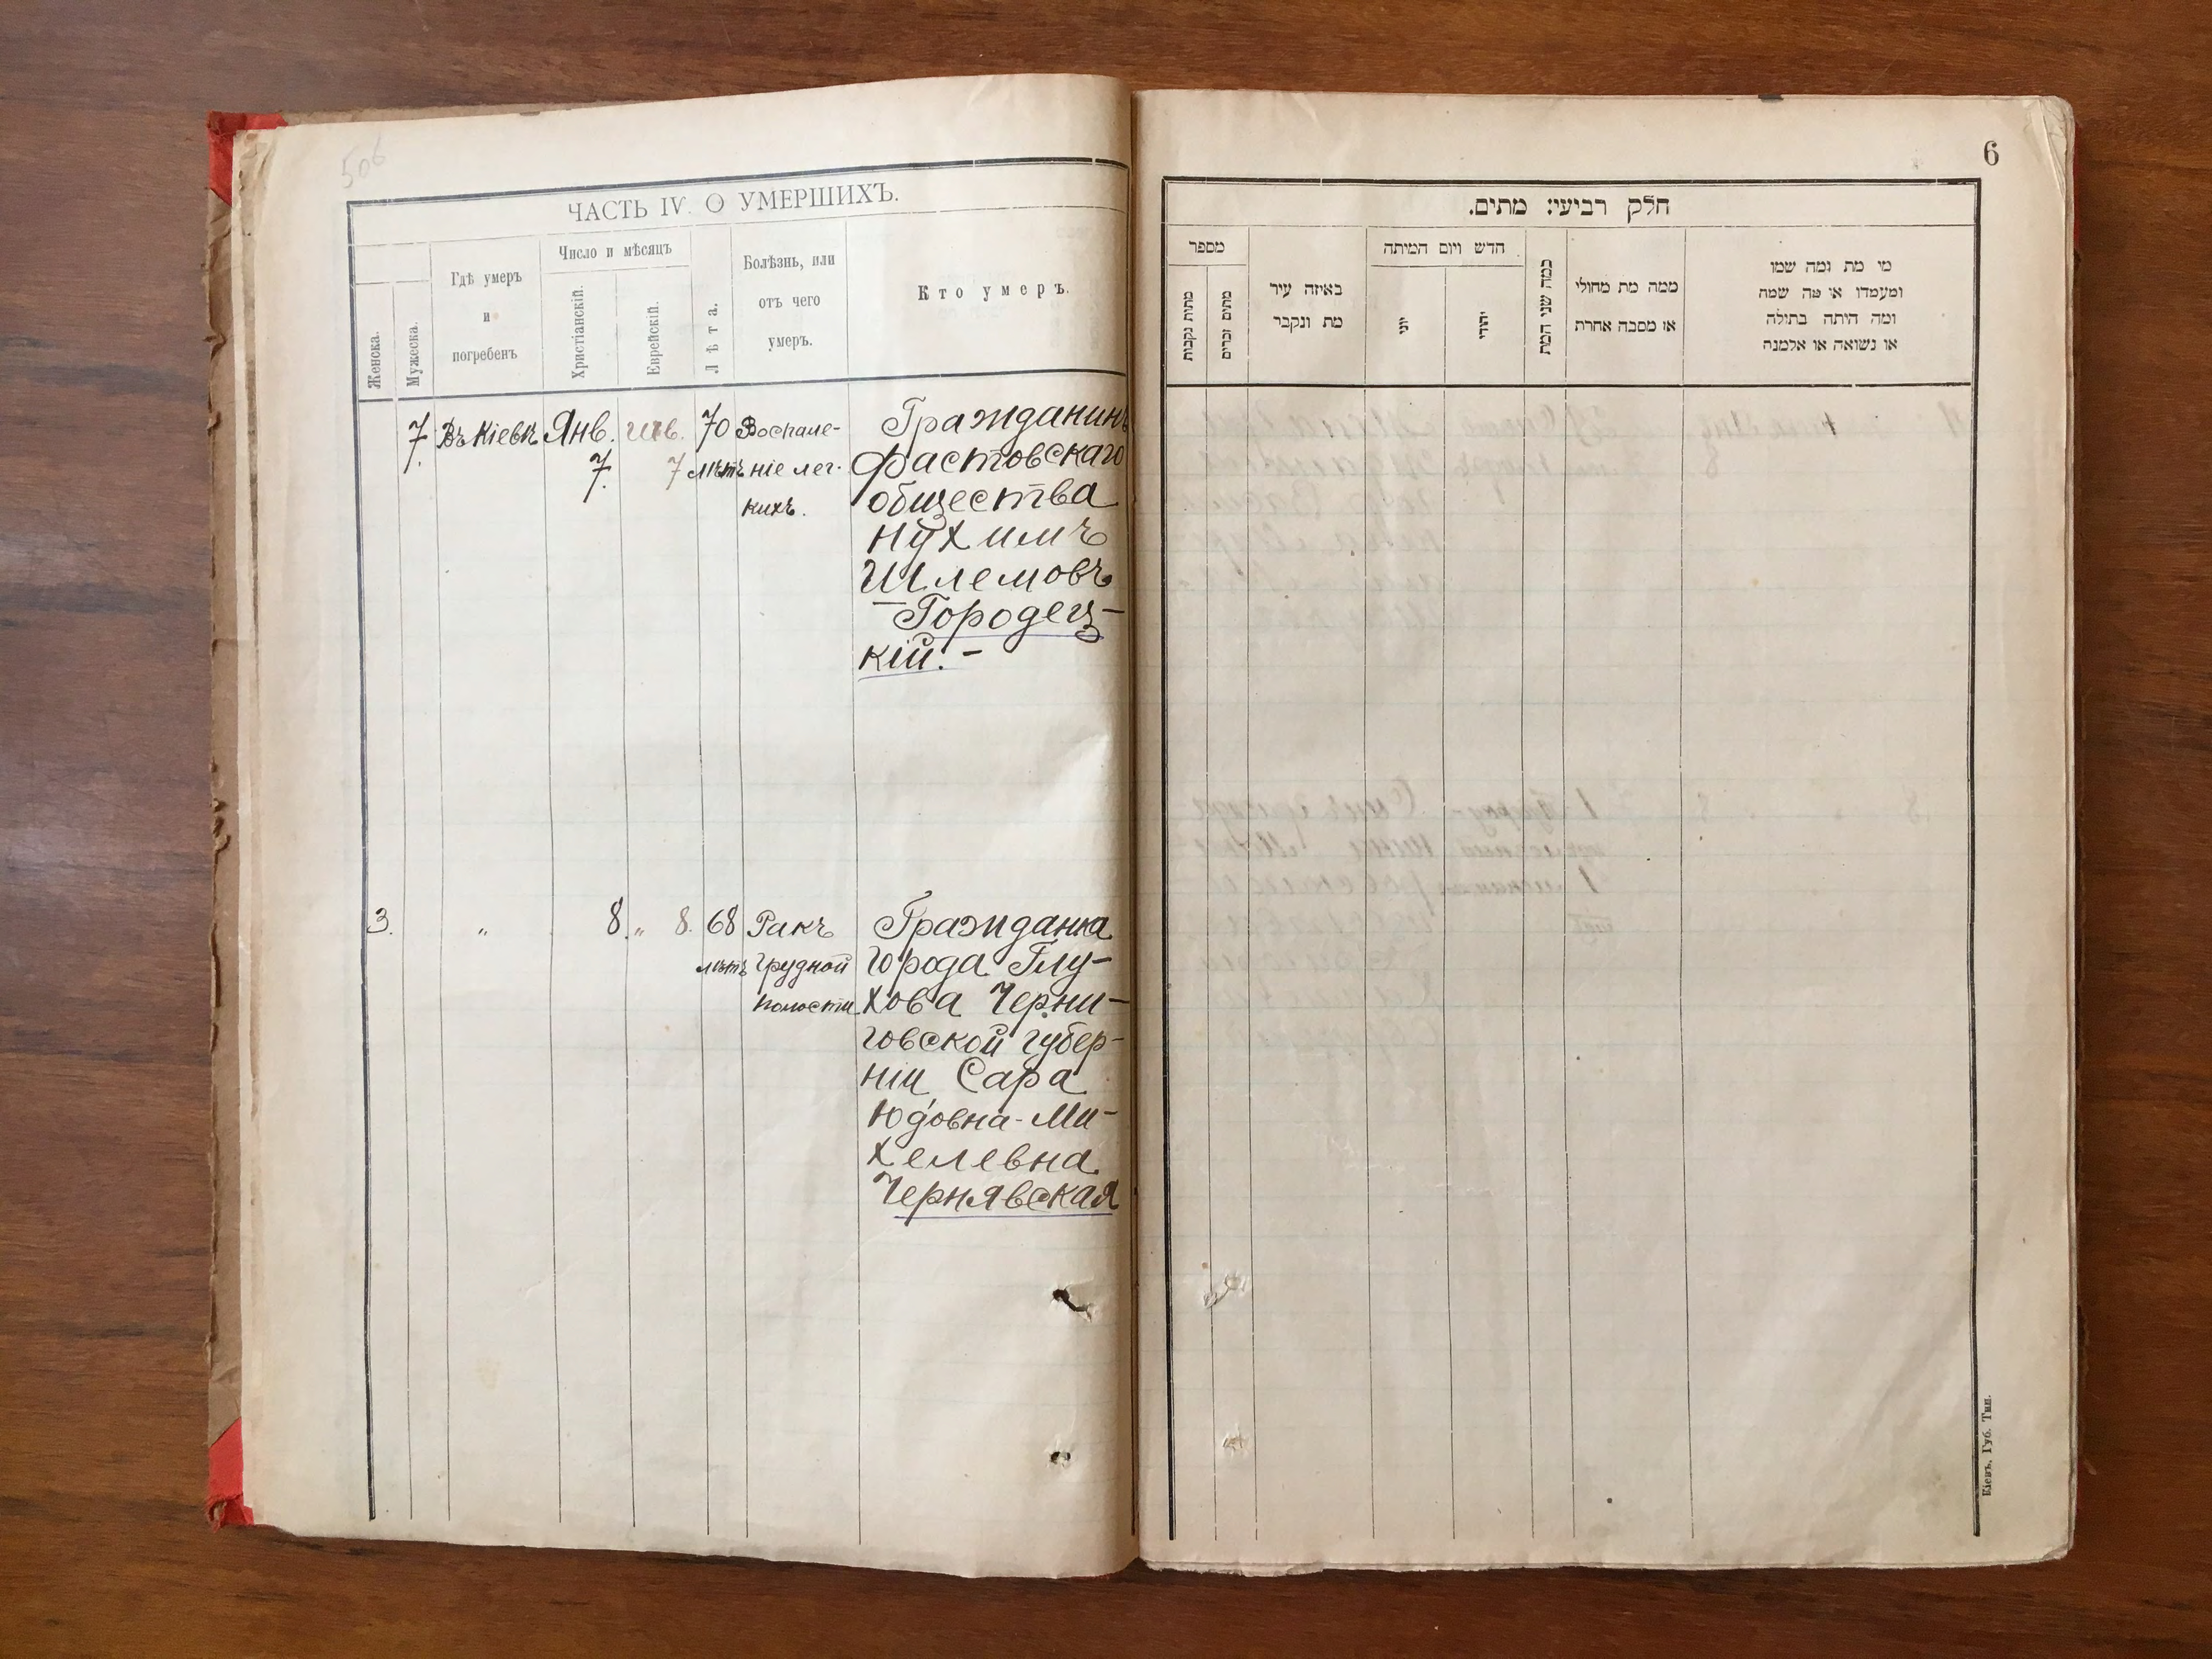 506
ЧАСТЬ IV. О УМЕРШИХЪ.
Женска.
Мужеска.
Гдѣ умеръ
и
погребенъ
Число и мѣсяцъ
Христіанскій.
Еврейскій.
Лѣта.
Болѣзнь, или
отъ чего
умеръ.
Кто умеръ.
7. Въ Кіевѣ Янв. Шв. 70 Воспале- Гражданинъ
7. 7 лѣтъ ніе лег- Фастовскаго
кихъ. общества
Нухимъ
Шлемовъ
-Городец-
кій.-
3. „ 8. „ 8. 68 Ракъ Гражданка
лѣтъ грудной города Глу-
полости хова Черни-
говской губер-
ніи Сара
Юдовна-Ми-
хелевна
Чернявская
6
חלק רביעי: מתים.
מספר
מתות נקבות
מתים זכרים
באיזה עיר
מת ונקבר
חדש ויום המיתה
יוני
יהודי
כמה שני המת
ממה מת מחולי
או מסבה אחרת
מי מת ומה שמו
ומעמדו או מה שמה
ומה היתה בתולה
או נשואה או אלמנה
Кіевъ, Губ. Тип.